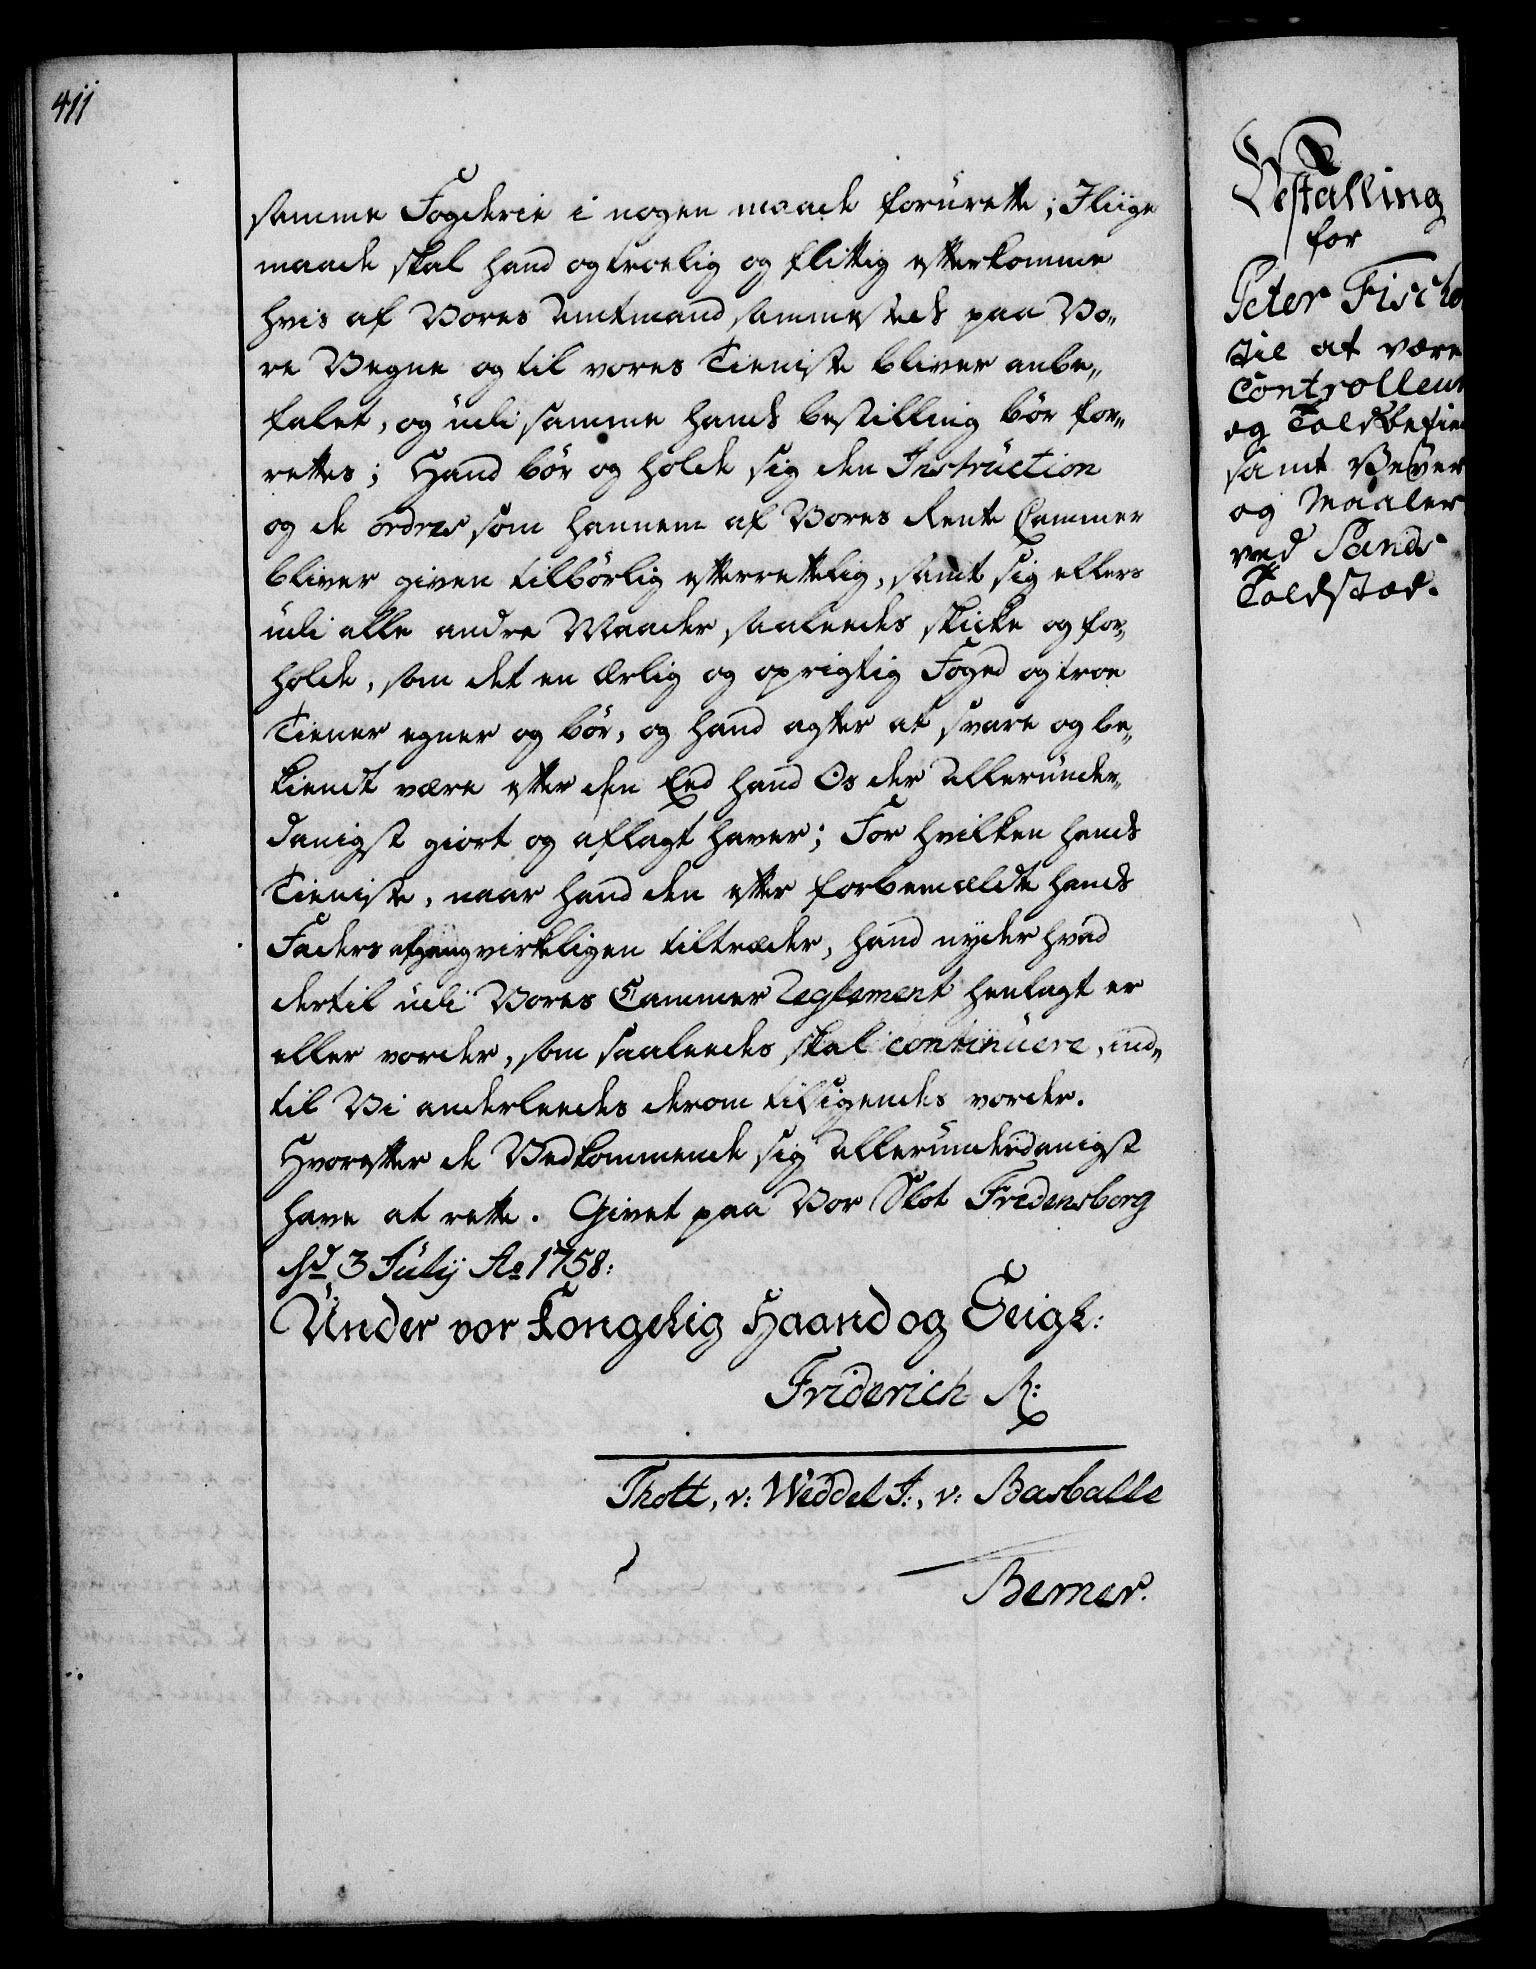 411
samme Fogderie i nogen maade forurette; I liige
maade skal hand og troelig og flittig efterkomme
hvis af Vores Amtmand sammesteds paa Vo„
re Vegne og til vores Tieniste bliver anbe„
falet, og udi samme hands bestilling bör for„
rettes; Hand bör og holde sig den Instruction
og de ordres som hannem af Vores Rente Cammer
bliver given tilbörlig efterrettelig, samt sig ellers
udi alle andre Maader saaledes skicke og for„
holde, som det en ærlig og oprigtig Foged og troe
Tiener egner og bör, og hand agter at svare og be„
kiendt være efter den Eed hand Os der allerunder„
danigst giort og aflagt haver; For hvilken hands
Tieniste, naar hand den efter forbemældte hands
Faders afgang virkeligen tiltræder, hand nyder hvad
dertil udi Vores Cammer Reglement henlagt er
eller vorder, som saaleedes skal continuere, ind„
til Vi anderleedes derom tilsigendes vorder.
Hvorefter de Vedkommende sig allerunderdanigst
have at rette. Givet paa Vor Slot Fredensborg
dd 3 Julij Ao 1758:
Under vor Kongelig Haand og Seigl:
Friderich R:
Thott, v: Weddel J:, v: Basballe
Berner.
Bestalling
for
Peter Fische
til at være
Controlleur
og Toldbetien
samt Veyer
og Maaler
ved Sands
Toldsted.